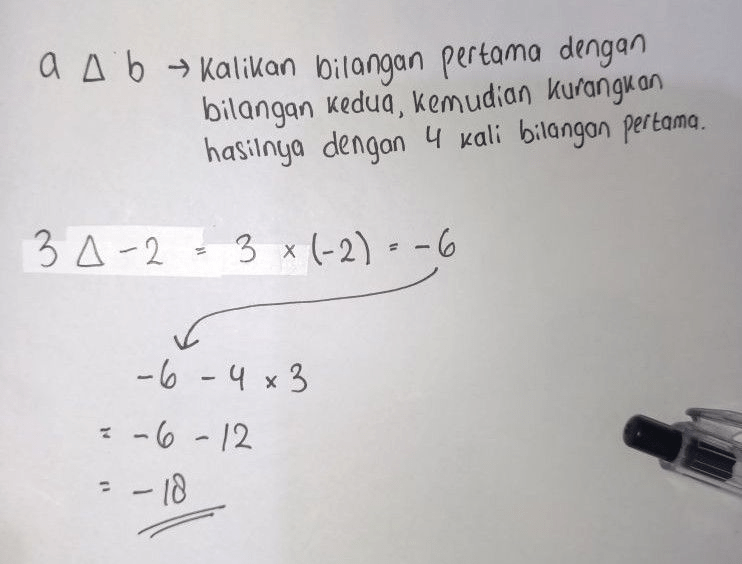 a Δ b → Kalikan bilangan pertama dengan
bilangan kedua, kemudian kurangkan
hasilnya dengan 4 kali bilangan pertama.
3 Δ -2 = 3 × (-2) = -6
-6 - 4 × 3
= -6 - 12
= -18